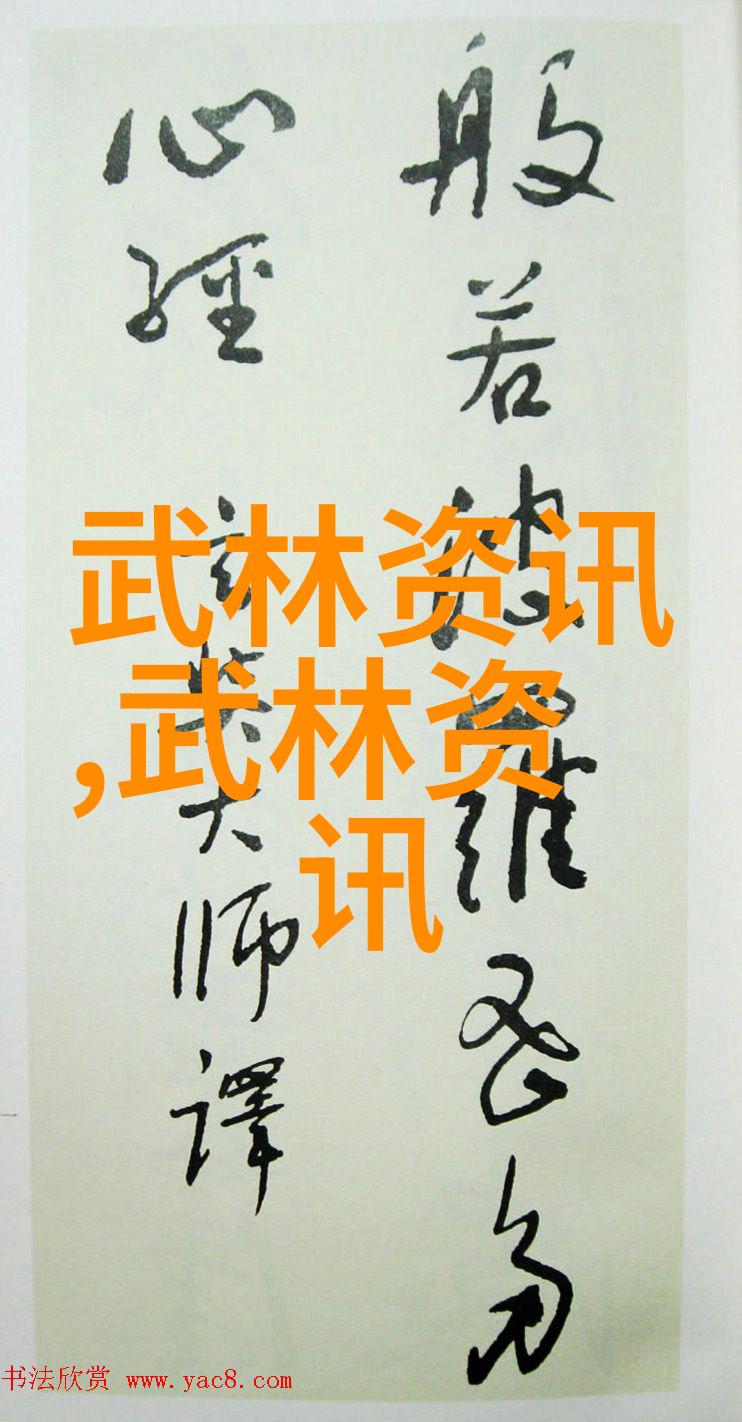 般若波羅蜜多
心經 玄奘大師譯
武林资讯
,武林资
讯
书法欣赏 www.yac8.com